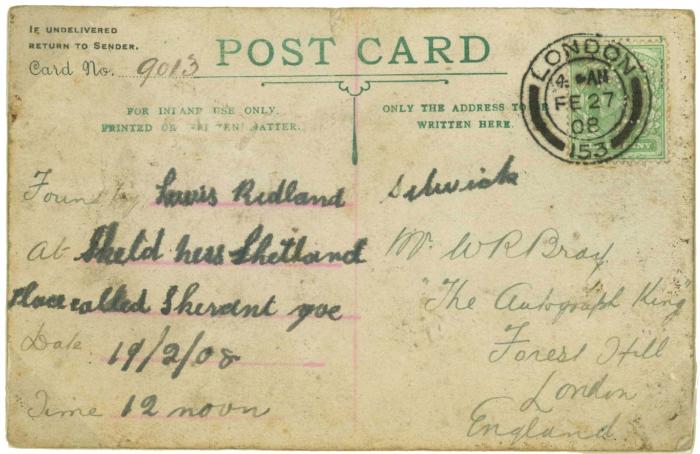 IF UNDELIVERED
RETURN TO SENDER.
Card No. 9013
POST CARD
FOR INLAND USE ONLY.
PRINTED OR WRITTEN MATTER.
ONLY THE ADDRESS TO BE
WRITTEN HERE.
LONDON
AM
FE 27
08
153
NNY
Found by Lewis Ridland
At Skeld ness Shetland
Place called Sherent goe
Date 19/2/08
Time 12 noon
Selwick
Mr. W R Bray
"The Autograph King"
Forest Hill
London
England.